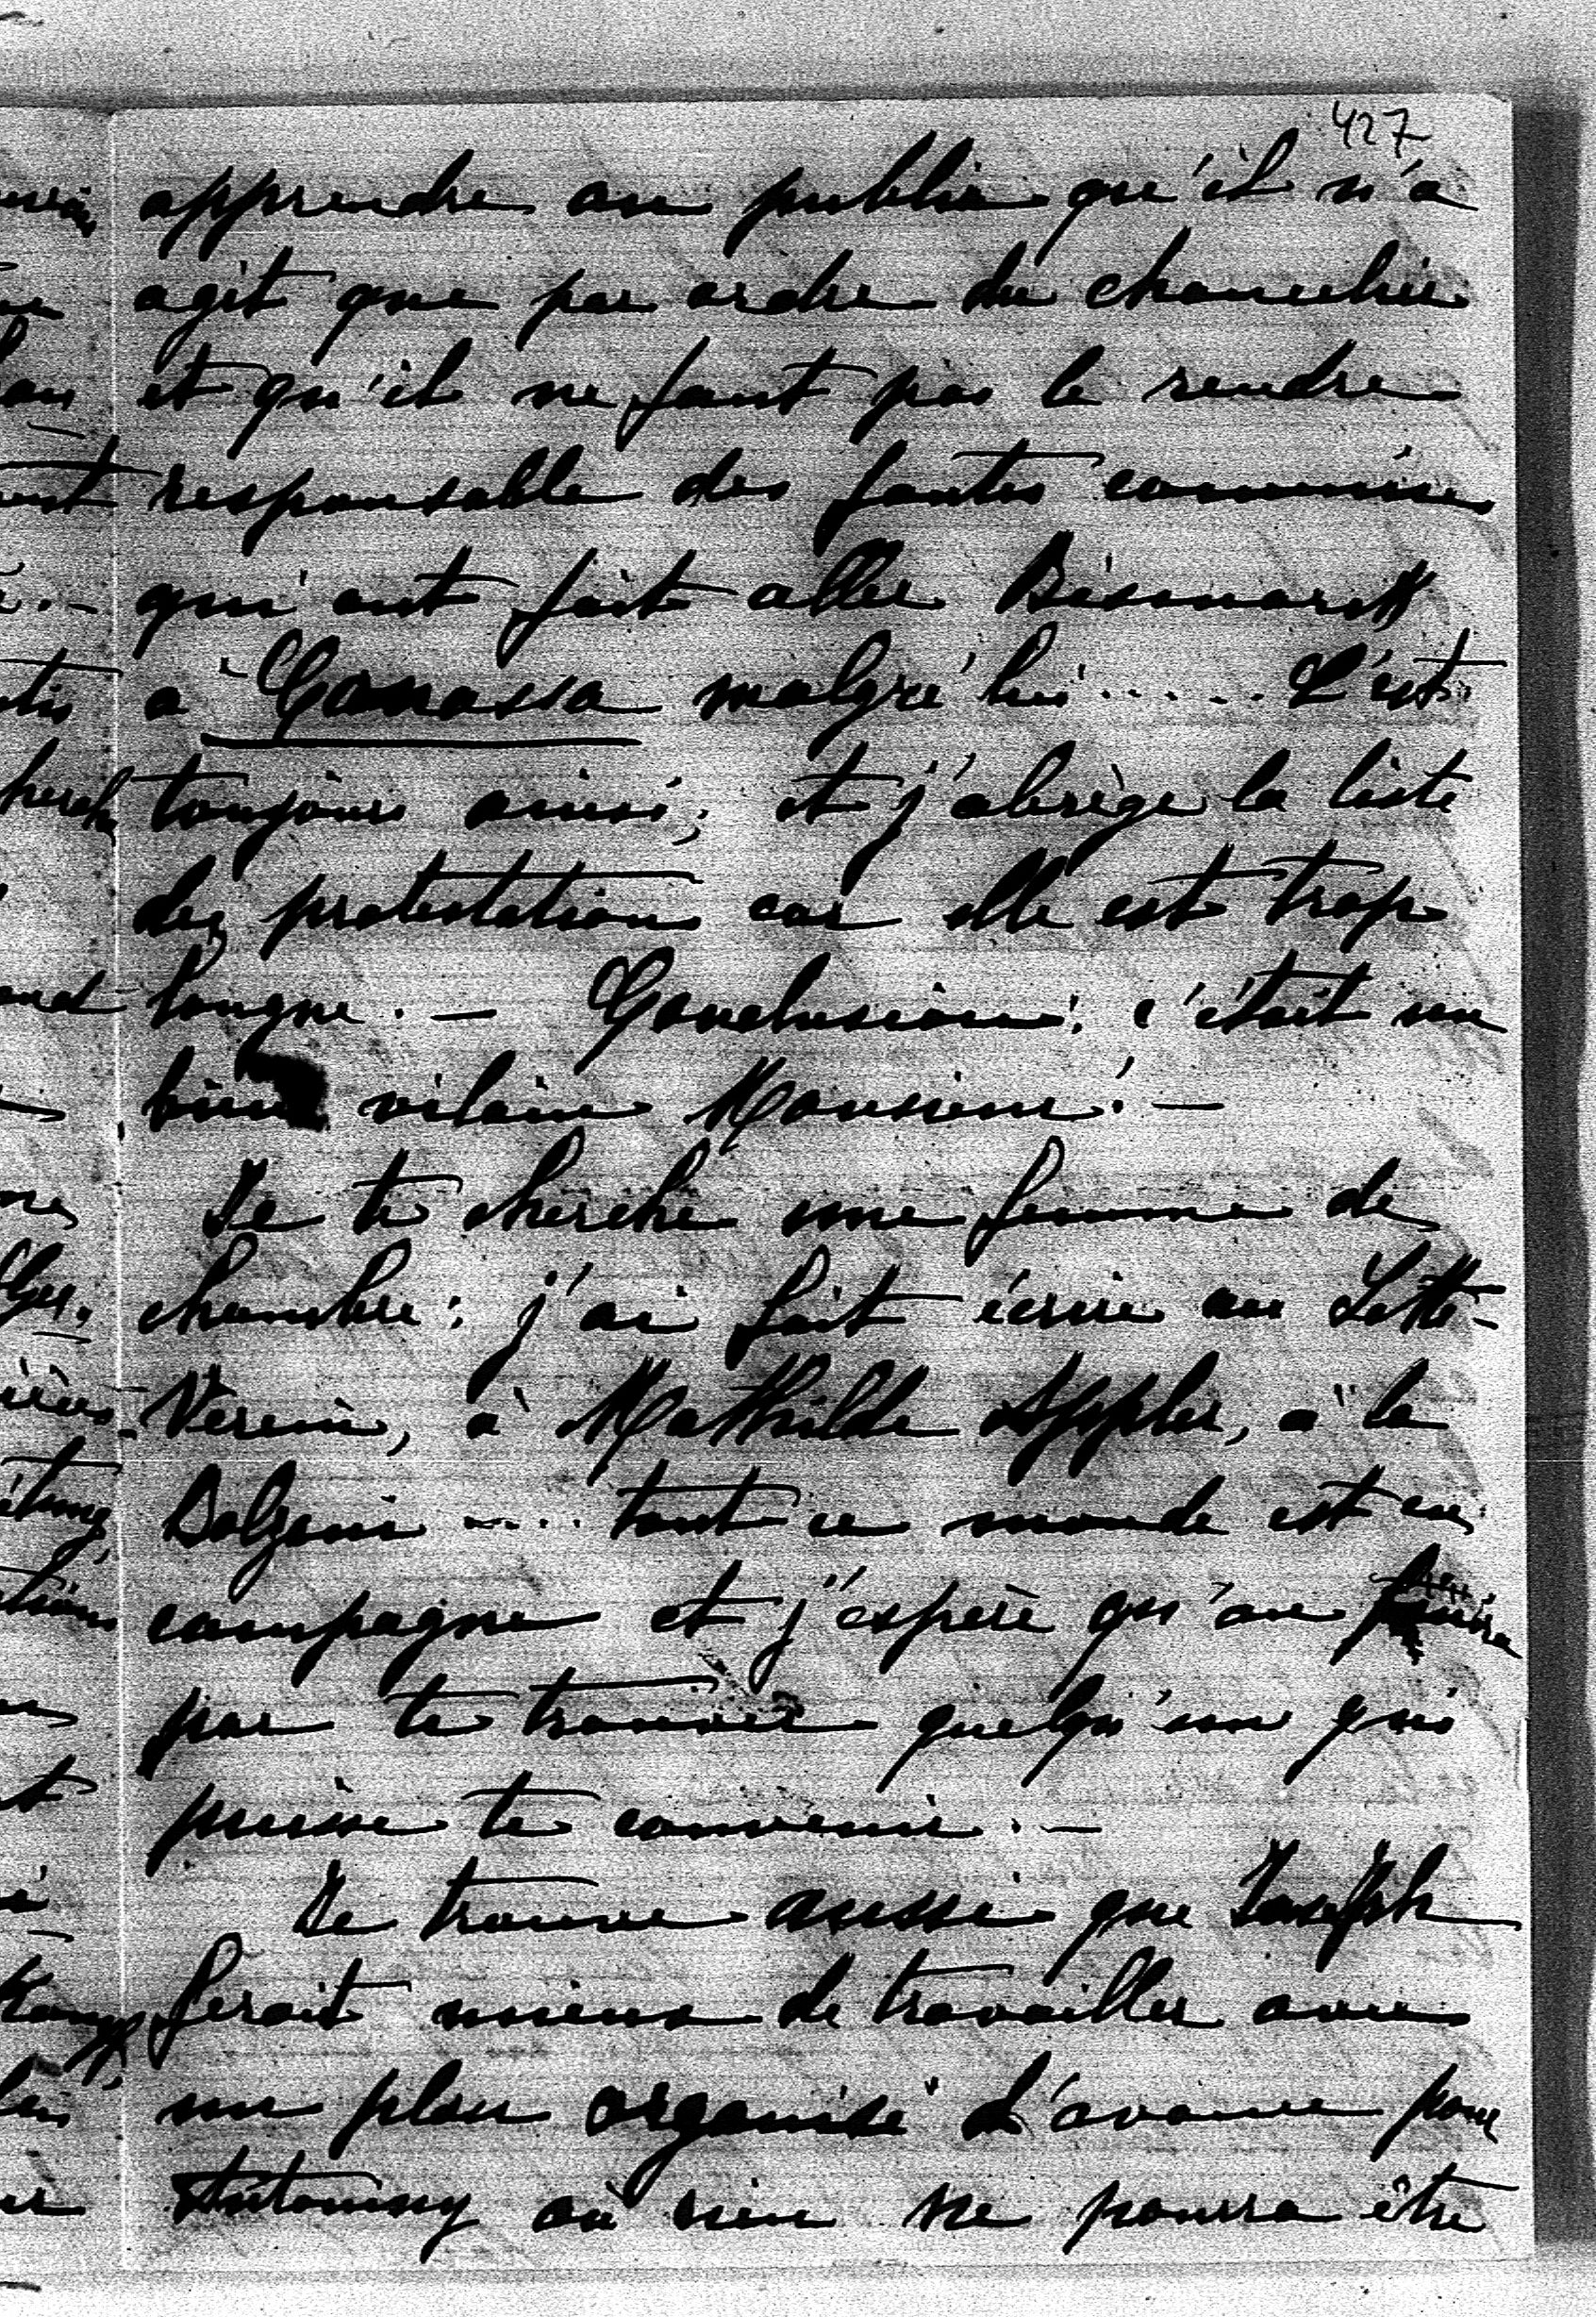 427
apprendre au public qu'il n'a
agit que par ordre du chancelier
et qu'il ne faut pas le rendre
responsable des fautes commises
qui ont fait aller Bismarck
à Canossa malgré lui ..... C'est
toujours ainsi; et j'abrège la liste
des protestations car elle est trop
longue. — Conclusion: c'était un
bien vilain Monsieur! —
Je te cherche une femme de
chambre: j'ai fait écrire au Lette-
Verein, à Mathilde Appler, à la
Bolzani .... tout ce monde est en
campagne et j'espère qu'on finira
par te trouver quelqu'un qui
puisse te convenir. —
Je trouve aussi que Joseph
ferait mieux de travailler avec
un plan organisé d'avance pour
Antoniny où rien ne pourra être